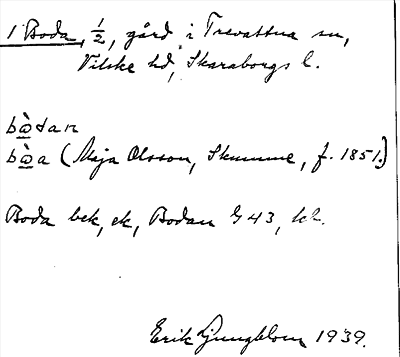 1 Boda, 1/2, gård i Trevattna sn,
Vilske hd, Skaraborgs l.
bὼdan
bὼa (Maja Olsson, Skumme, f. 1851.)
Boda bek, ek, Bodan G 43, kh.
Erik Ljungblom 1939.